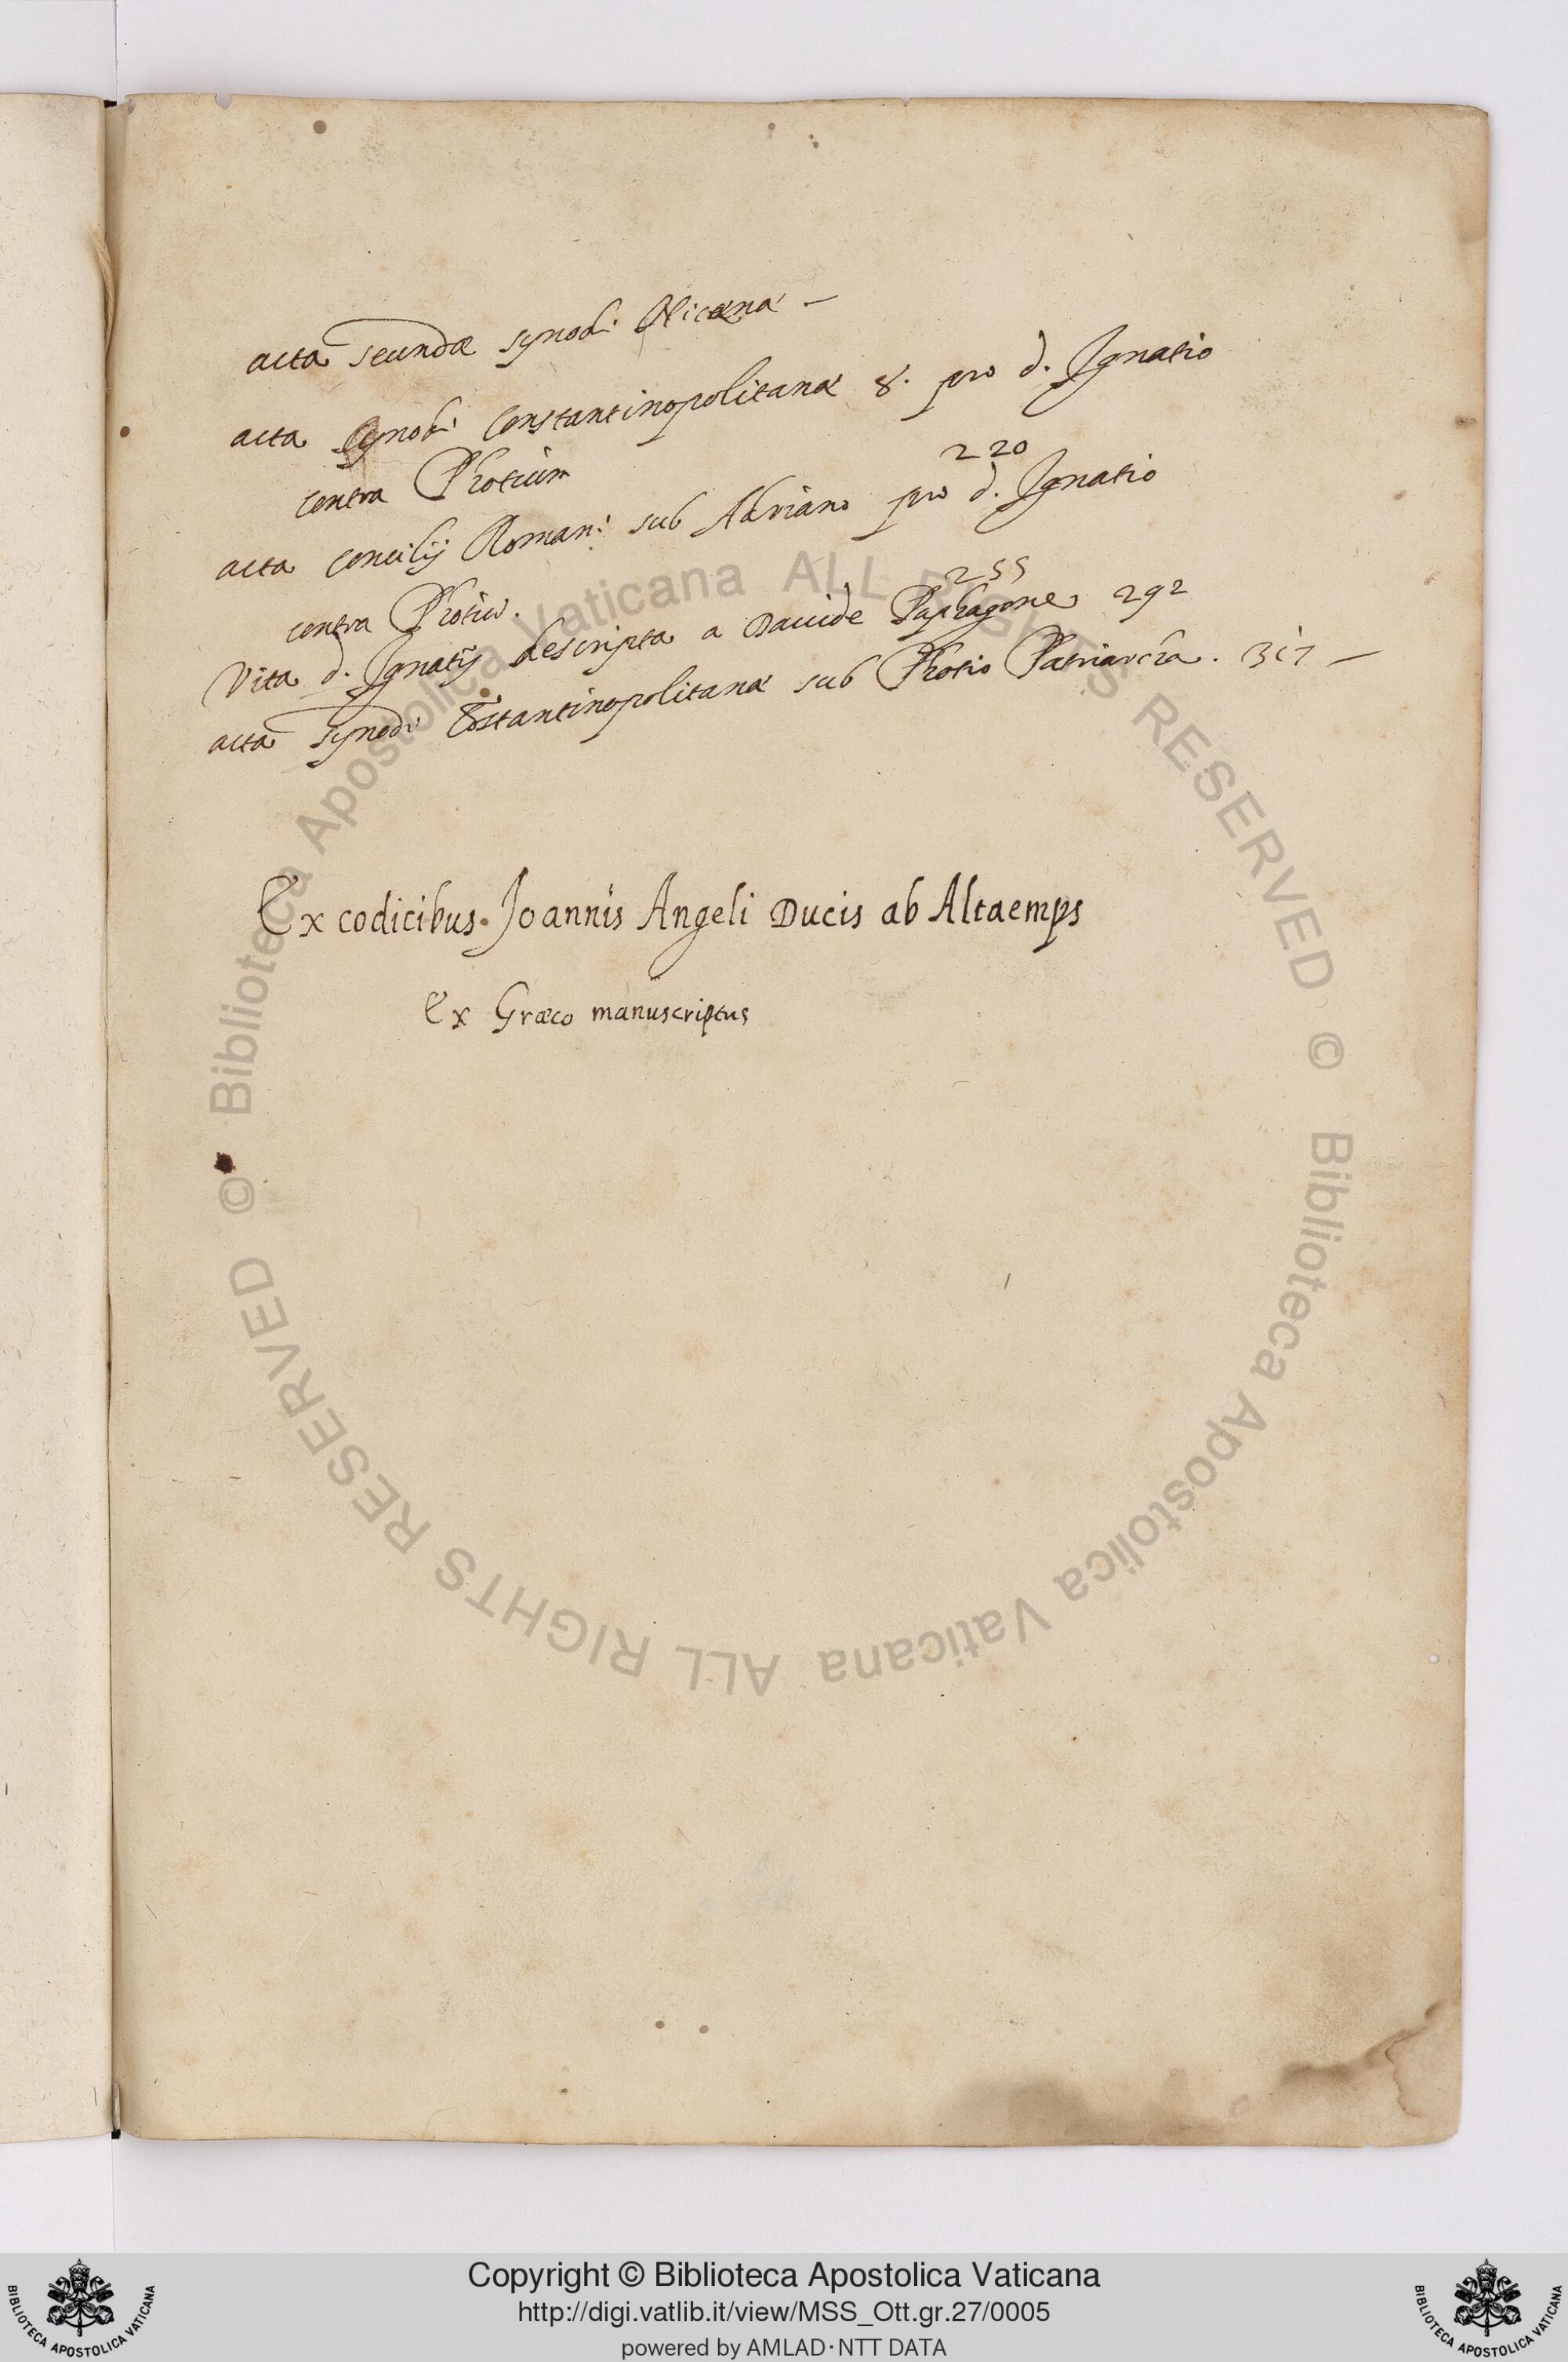 acta secundæ synodi Nicænæ –
acta synodi Constantinopolitanæ 8. pro d. Ignatio
contra Photium 220
acta concilij Romani sub Adriano pro d. Ignatio
contra Photiū. 255
Vita d. Ignatij descripta a Dauide Paphagone 292
acta synodi Cōstantinopolitanæ sub Photio Patriarcha. 317 –
Ex codicibus Joannis Angeli Ducis ab Altaemps
Ex Græco manuscriptus
© Biblioteca Apostolica Vaticana ALL RIGHTS RESERVED
© Biblioteca Apostolica Vaticana ALL RIGHTS RESERVED
Copyright © Biblioteca Apostolica Vaticana
http://digi.vatlib.it/view/MSS_Ott.gr.27/0005
powered by AMLAD·NTT DATA
BIBLIOTECA APOSTOLICA VATICANA
BIBLIOTECA APOSTOLICA VATICANA